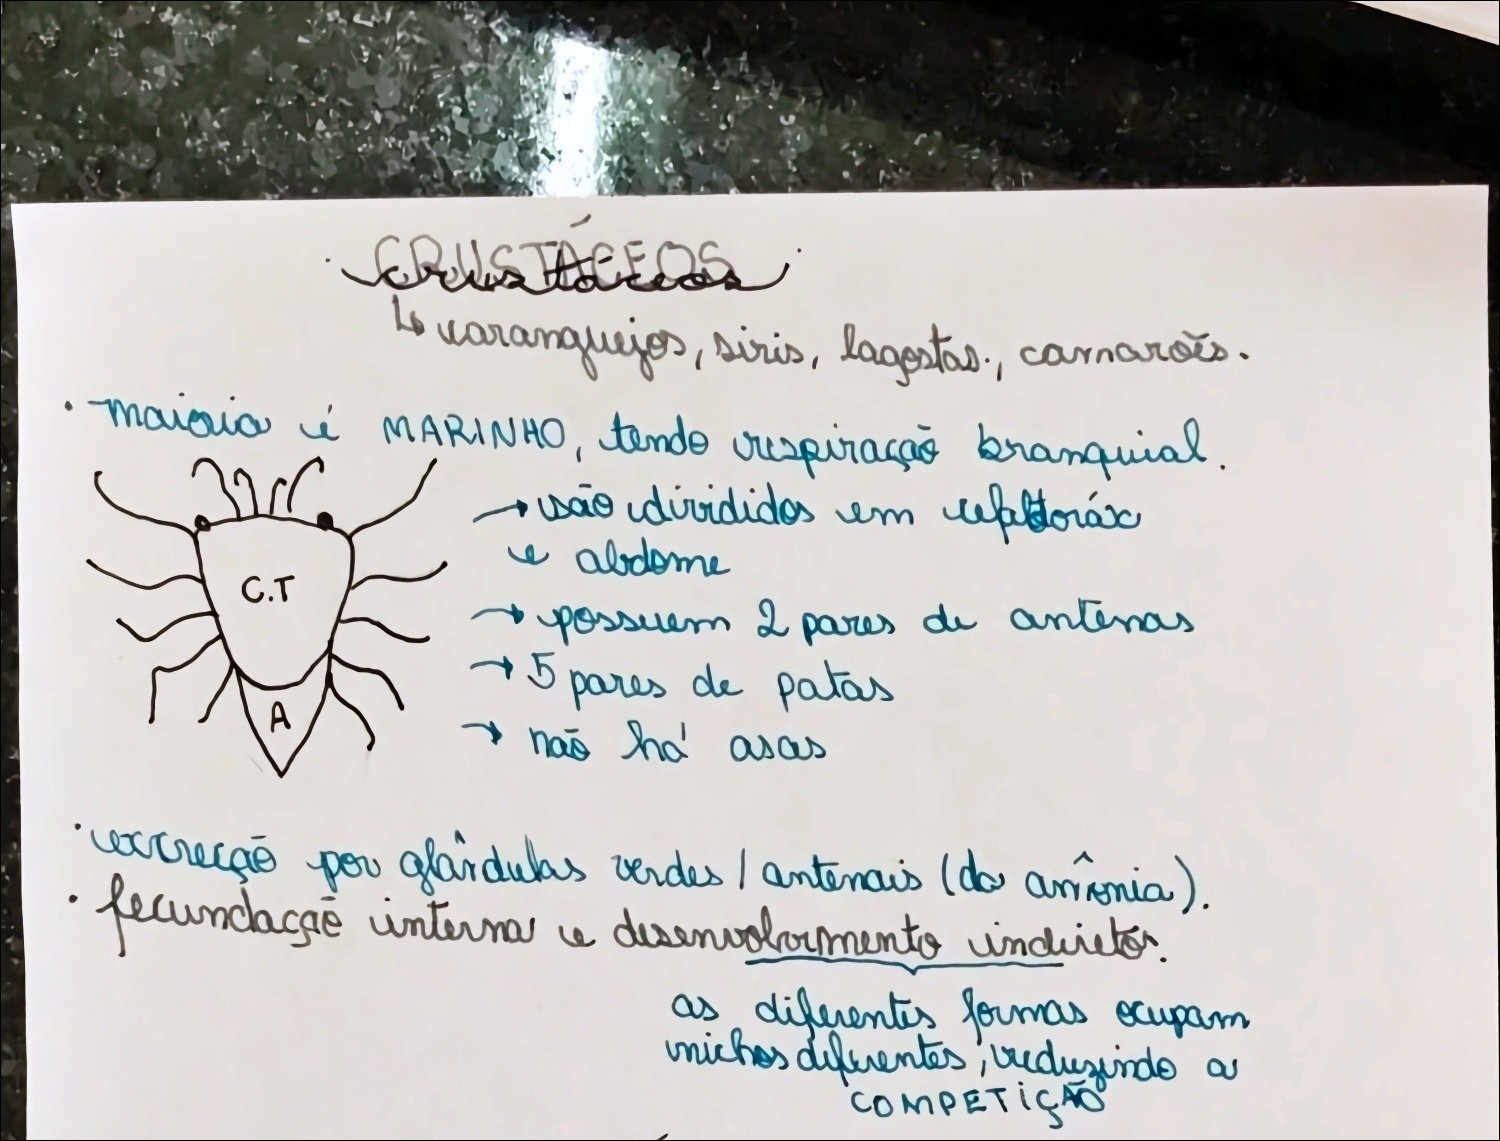 CRUSTÁCEOS
crustáceos
↳ caranguejos, siris, lagostas., camarões.
· maioria é MARINHO, tendo respiração branquial.
→ são divididos em cefalotoráx
e abdome
C.T
→ possuem 2 pares de antenas
→ 5 pares de patas
A
→ não há asas
· excreção por glândulas verdes / antenais (da amônia).
· fecundação interna e desenvolvimento indireto.
as diferentes formas ocupam
nichos diferentes, reduzindo a
COMPETIÇÃO